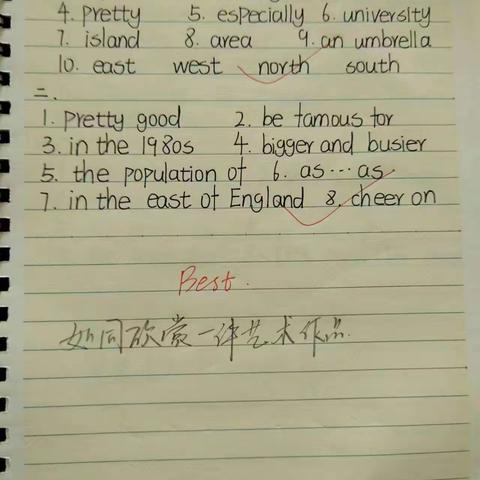 4. pretty 5. especially 6. university
7. island 8. area 9. an umbrella
10. east west north south
二.
1. pretty good 2. be famous for
3. in the 1980s 4. bigger and busier
5. the population of 6. as…as
7. in the east of England 8. cheer on
Best.
如何欣赏一件艺术作品.